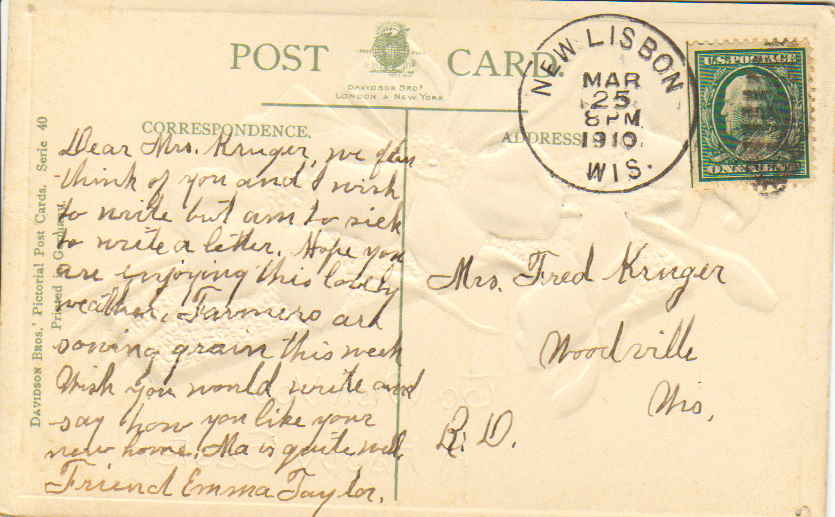 POST CARD.
DAVIDSON BROS
LONDON & NEW YORK
NEW LISBON
MAR
25
8 PM
1910
WIS.
U.S. POSTAGE
CORRESPONDENCE.
Dear Mrs. Kruger, we often
think of you and I wish
to write but am to sick
to write a letter. Hope you
are enjoying this lovely
weather. Farmers are
sowing grain this week
Wish you would write and
say how you like your
new home. Ma is quite well.
Friend Emma Taylor.
ADDRESS
Mrs. Fred Kruger
Woodville
Wis,
R. D.
DAVIDSON BROS.' Pictorial Post Cards. Serie 40
Printed in Germany.